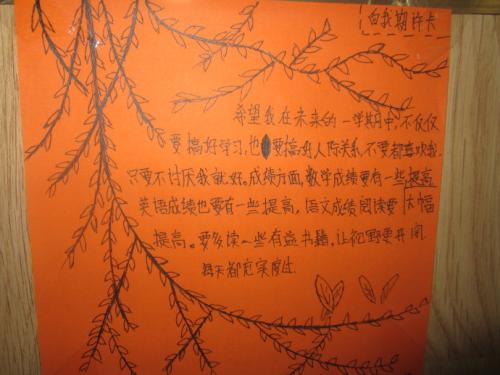 自我期许卡
希望我在未来的一学期中,不仅仅
要搞好学习,也要搞好人际关系,不要都喜欢我,
只要不讨厌我就好。成绩方面,数学成绩要有一些提高,
英语成绩也要有一些提高,语文成绩阅读要大幅
提高。要多读一些有益书籍,让视野更开阔
每天都充实度过.